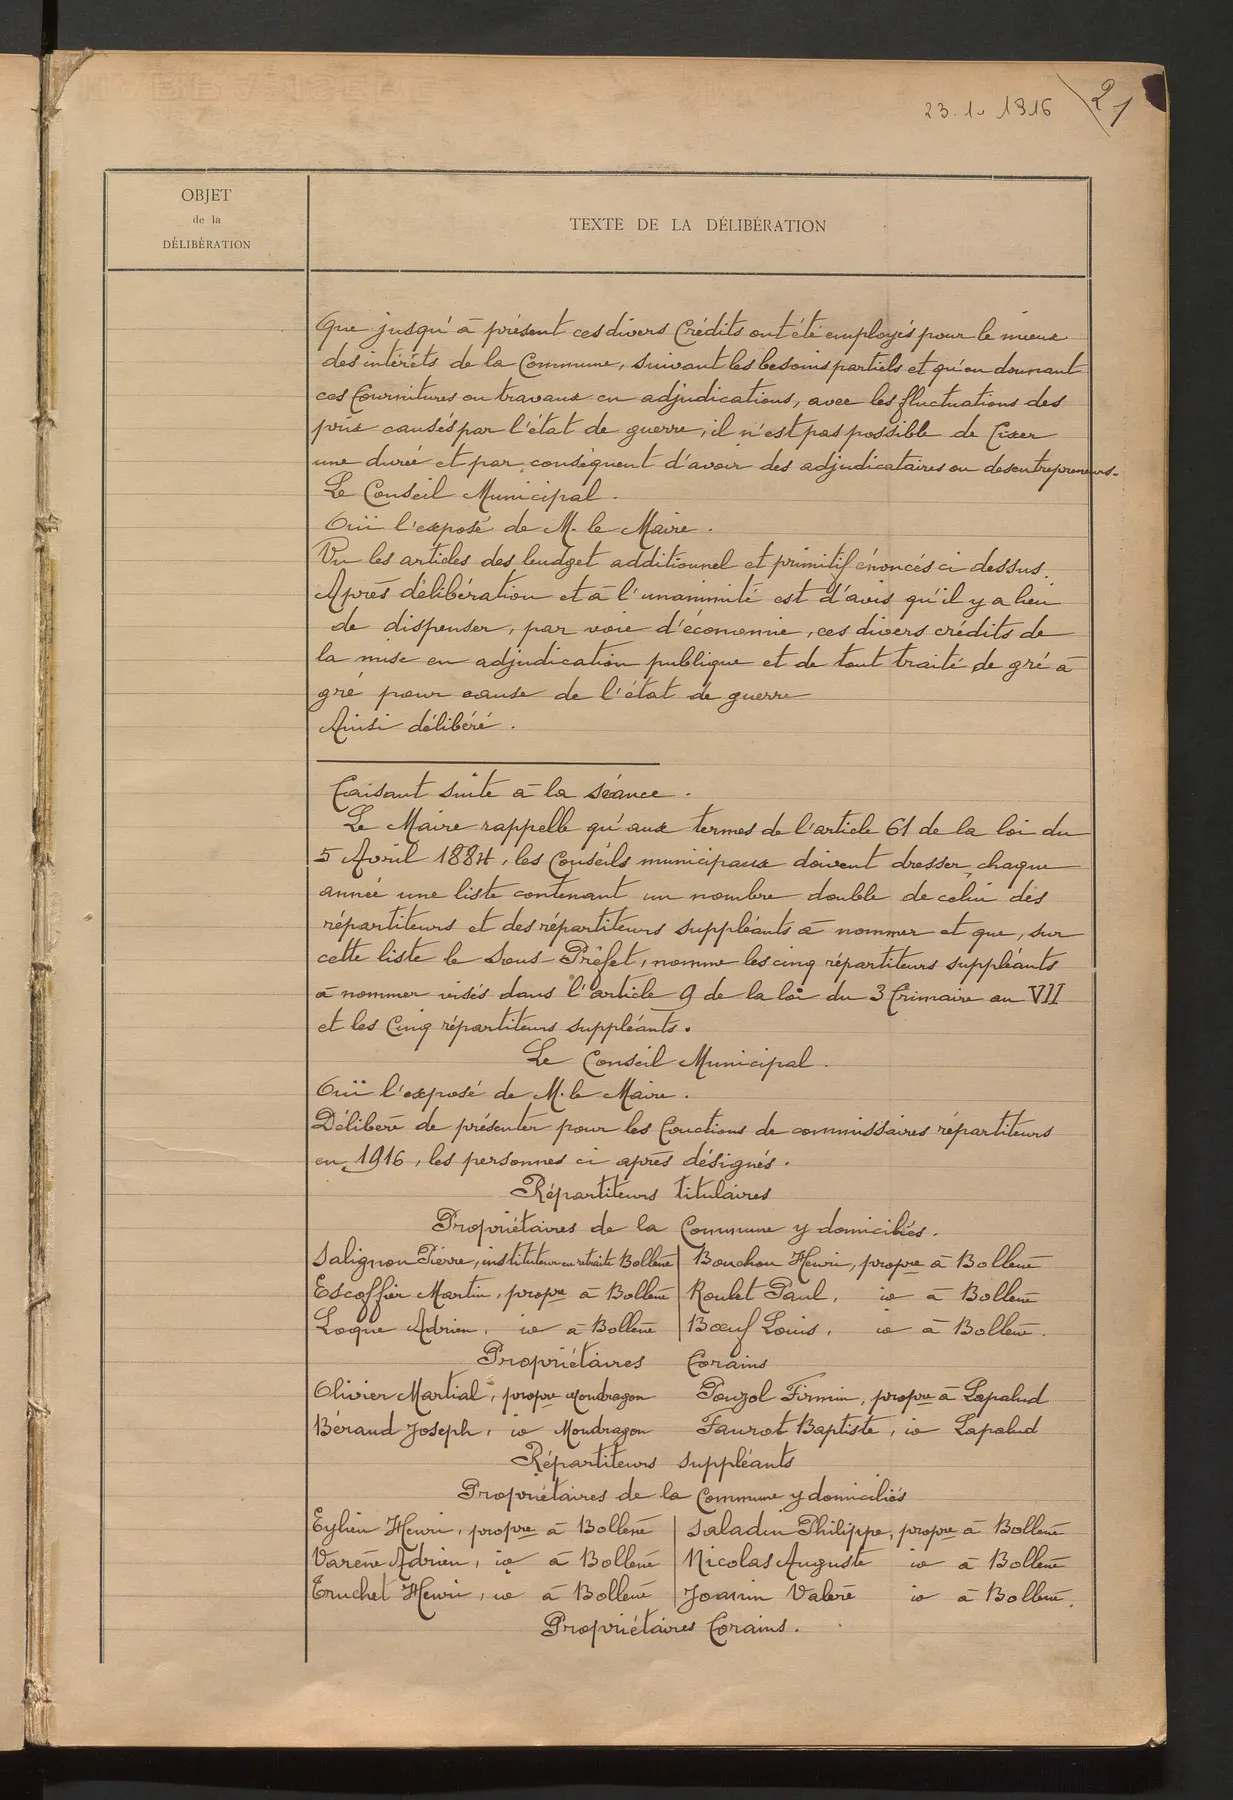 23. 1. 1916
21
OBJET
de la
DÉLIBÉRATION
TEXTE DE LA DÉLIBÉRATION
Que jusqu'à présent ces divers Crédits ont été employés pour le mieux
des intérêts de la Commune, suivant les besoins partiels et qu'en donnant
ces fournitures ou travaux en adjudications, avec les fluctuations des
prix causés par l'état de guerre, il n'est pas possible de fixer
une durée et par conséquent d'avoir des adjudicataires ou des entrepreneurs.
Le Conseil Municipal.
Ouï l'exposé de M. le Maire.
Vu les articles des budget additionnel et primitif énoncés ci dessus.
Après délibération et à l'unanimité est d'avis qu'il y a lieu
de dispenser, par voie d'économie, ces divers crédits de
la mise en adjudication publique et de tout traité de gré à
gré pour cause de l'état de guerre
Ainsi délibéré.
Faisant suite à la séance.
Le Maire rappelle qu'aux termes de l'article 61 de la loi du
5 Avril 1884, les Conseils municipaux doivent dresser, chaque
année une liste contenant un nombre double de celui des
répartiteurs et des répartiteurs suppléants à nommer et que, sur
cette liste le Sous-Préfet, nomme les cinq répartiteurs suppléants
à nommer visés dans l'article 9 de la loi du 3 frimaire an VII
et les Cinq répartiteurs suppléants.
Le Conseil Municipal.
Ouï l'exposé de M. le Maire.
Délibère de présenter pour les fonctions de commissaires répartiteurs
en 1916, les personnes ci après désignés.
Répartiteurs titulaires
Propriétaires de la Commune y domiciliés.
Salignon Pierre, instituteur en retraite Bollène Bouchon Henri, propre à Bollène
Escoffier Martin, propre à Bollène Roulet Paul, io à Bollène
Loque Adrien, io à Bollène Bœuf Louis, io à Bollène.
Propriétaires forains
Olivier Martial, propre Mondragon Pouzol Firmin, propre à Lapalud
Béraud Joseph, io Mondragon Faurot Baptiste, io Lapalud
Répartiteurs suppléants
Propriétaires de la Commune y domiciliés
Eylieu Henri, propre à Bollène Saladin Philippe, propre à Bollène
Varène Adrien, io à Bollène Nicolas Auguste io à Bollène
Truchet Henri, io à Bollène Joannin Valère io à Bollène.
Propriétaires forains.